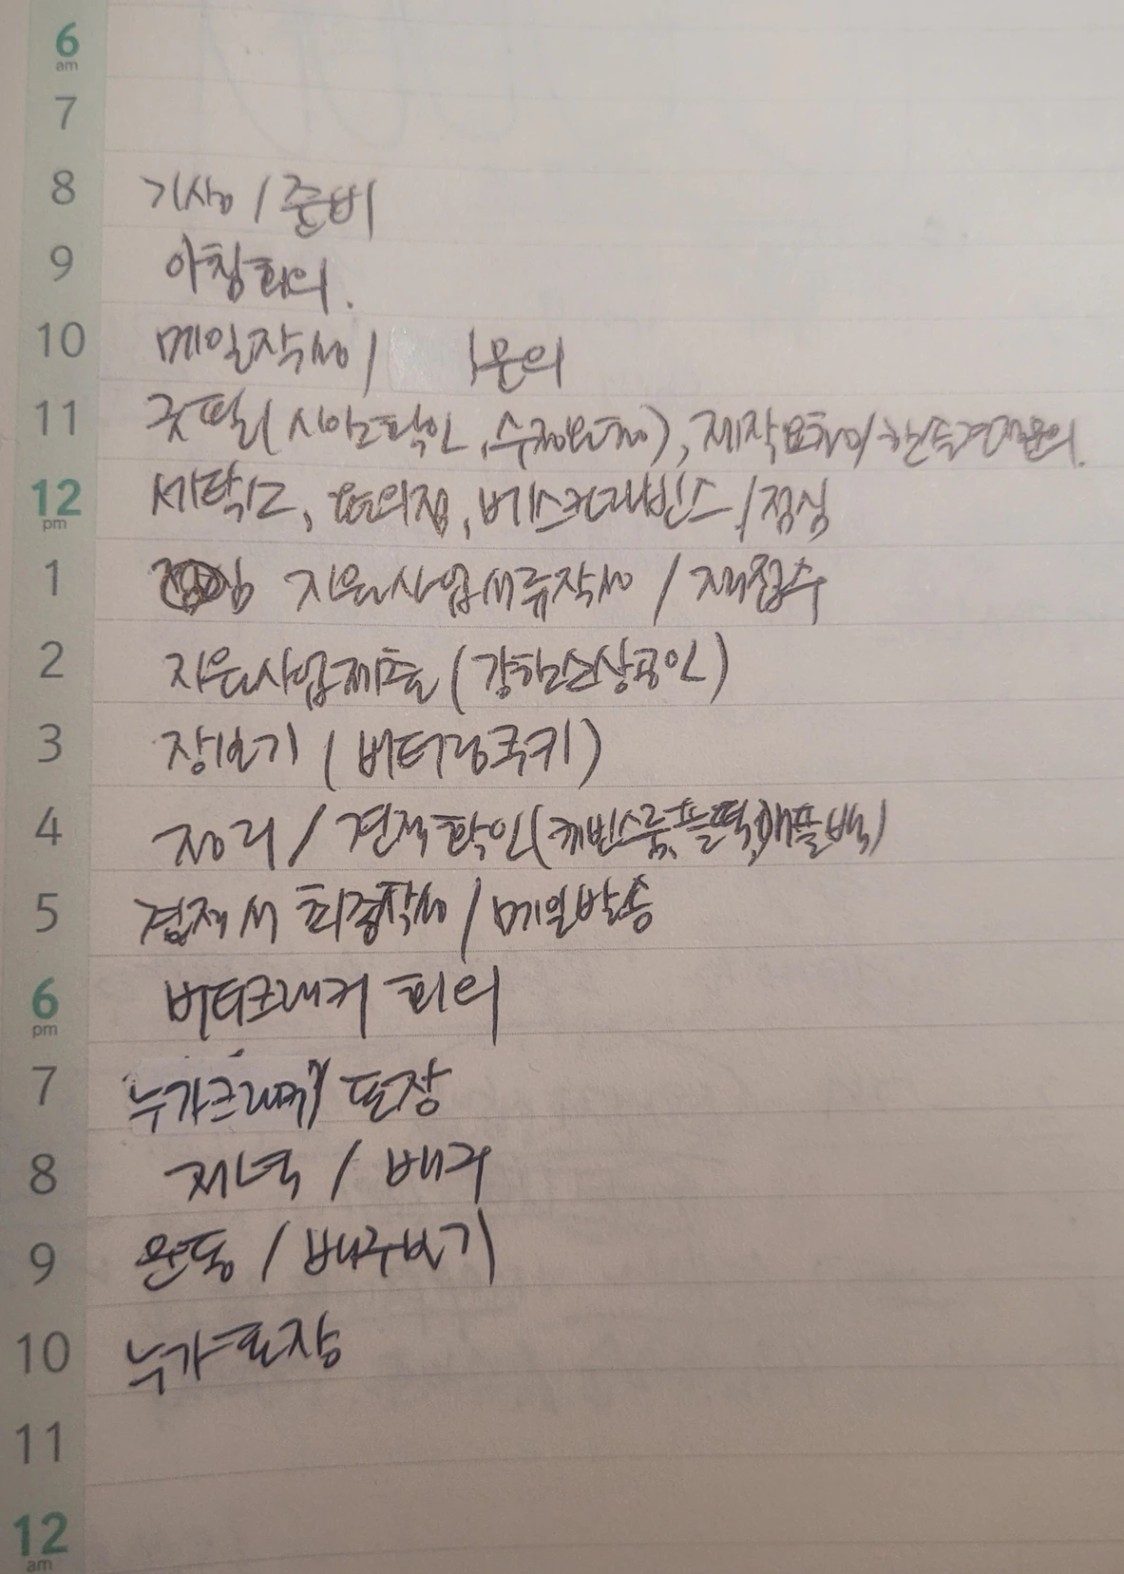 6 am
7
8 기상 / 준비
9 아침회의.
10 메일작성 / 문의
11 굿필(시안확인, 수정요청), 제작요청 / 한솔견적문의.
12 pm 세탁소, 편의점, 베스킨라빈스 / 점심
1 지원사업서류작성 / 재접수
2 지원사업제출 (강한소상공인)
3 장보기 (버터링쿡키)
4 정리 / 견적확인(캐빈스룸,
5 결제서 최종작성 / 메일발송
6 pm 버터크래커 회의
7 누가크래커 포장
8 저녁 / 배구
9 운동 / 배구보기
10 누가포장
11
12 am